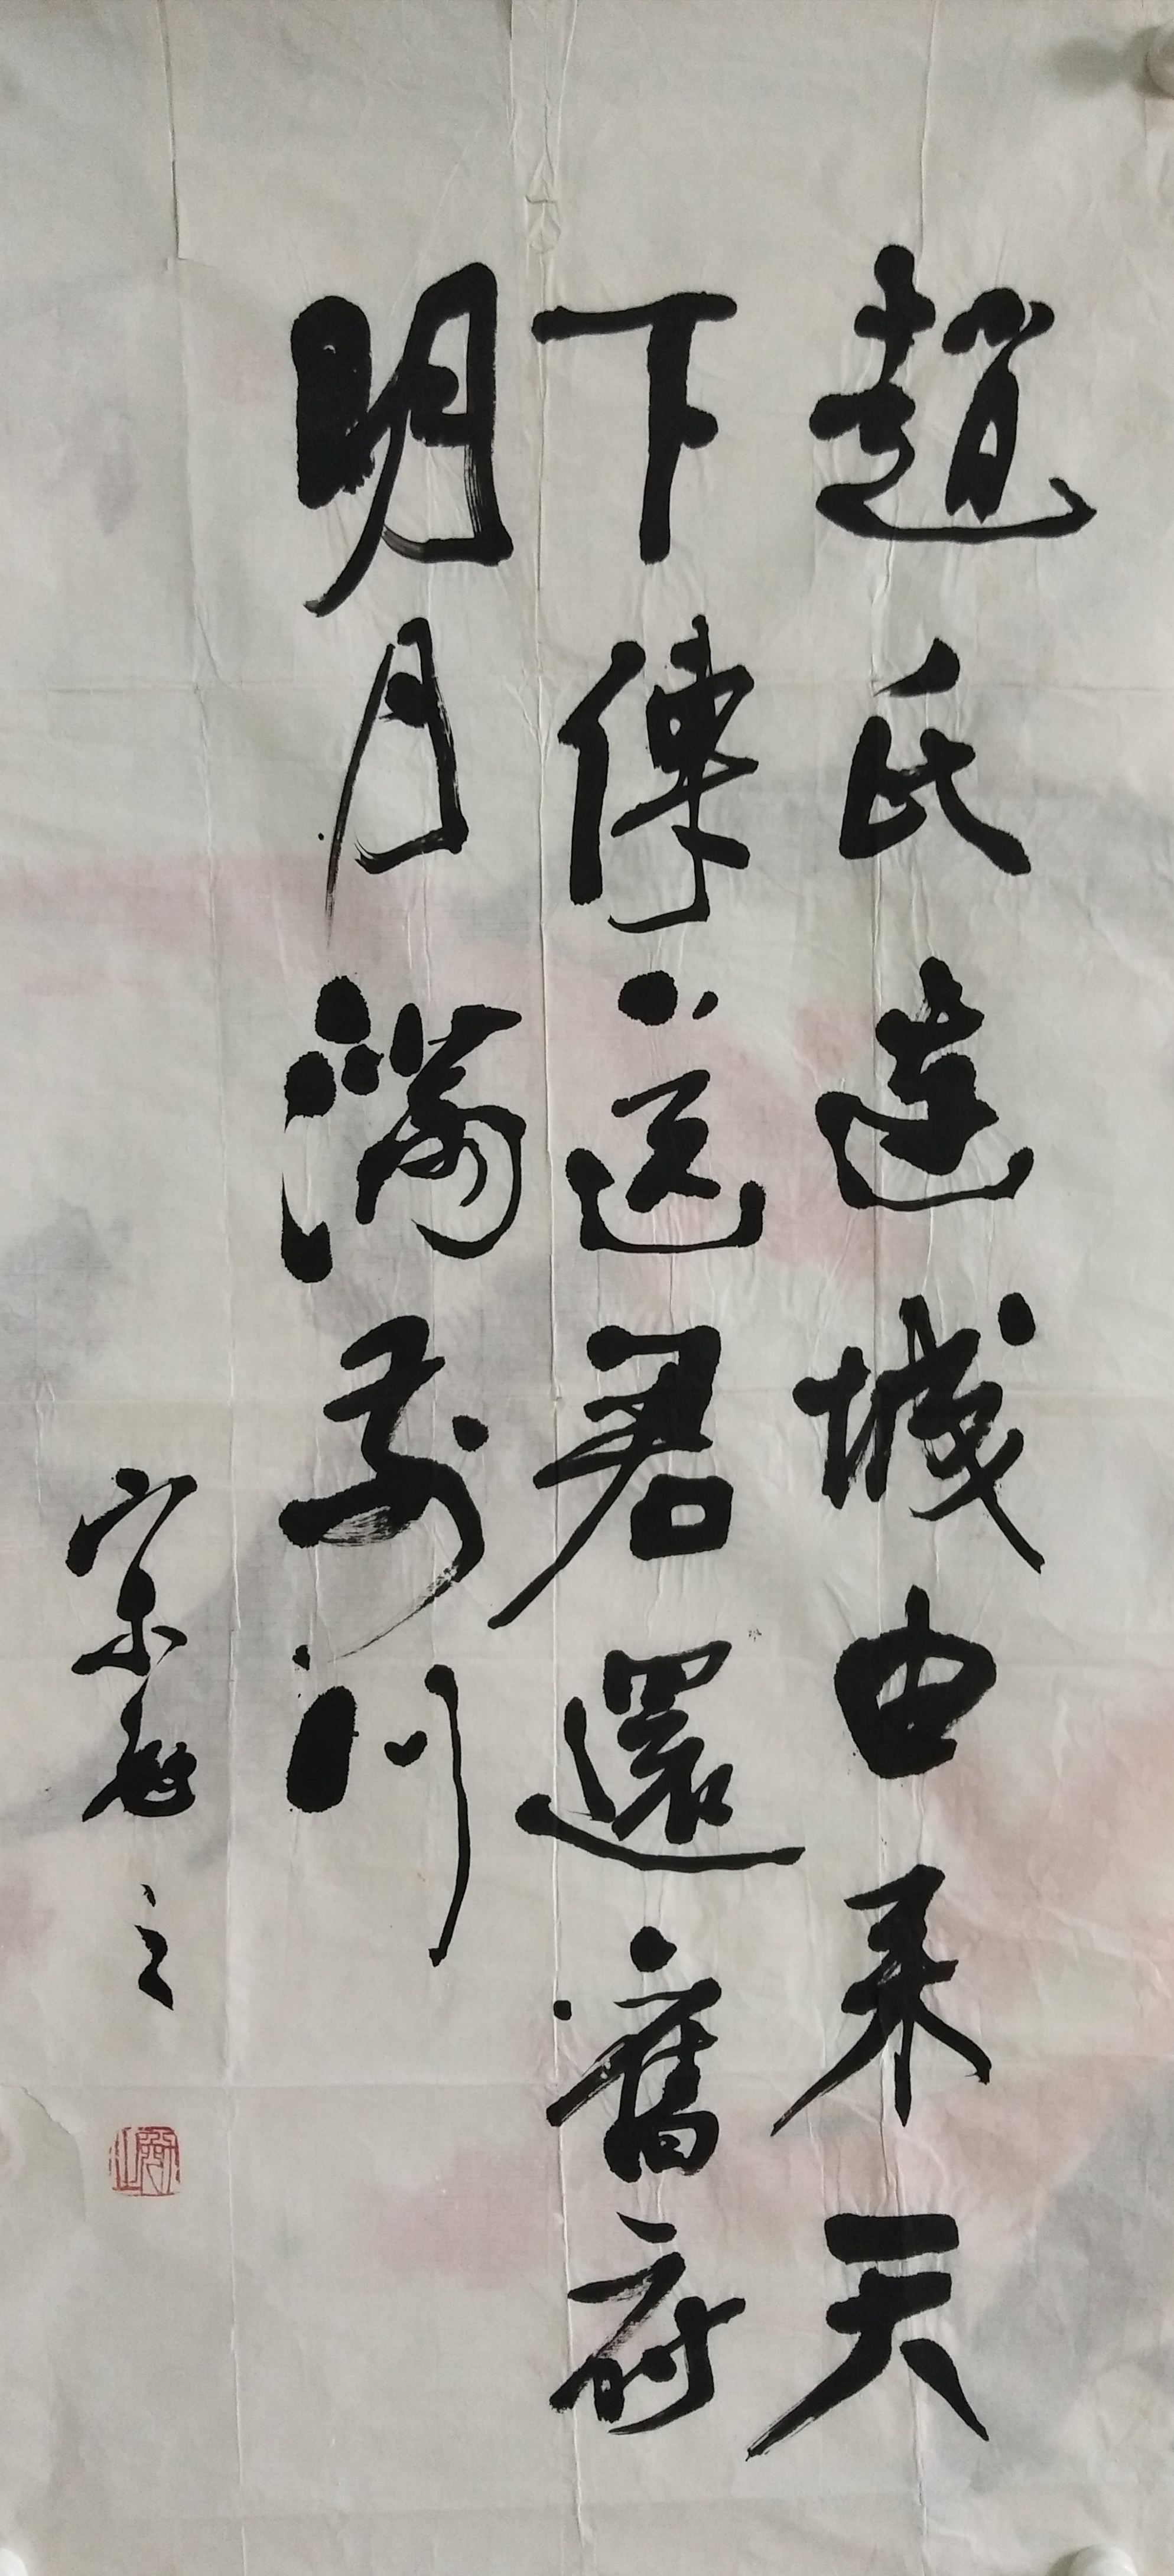 趙氏連城由来天
下傳送君還舊府
明月滿前川
宗
之